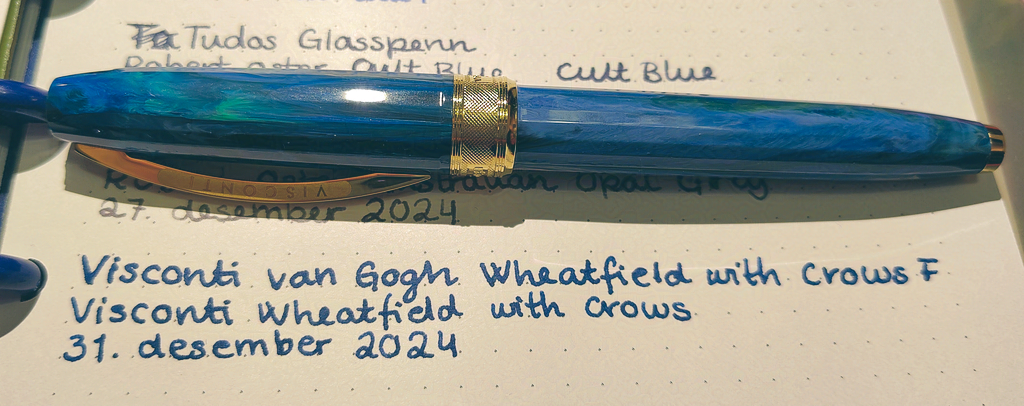 Tudos Glasspenn
Robert oster Cult Blue Cult Blue
VISCONTI
Opal Grey
27. desember 2024
Visconti van Gogh Wheatfield with Crows F
Visconti Wheatfield with Crows
31. desember 2024